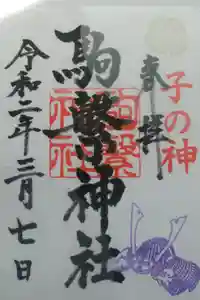 奉拝
子の神
駒繋神社
令和二年三月七日